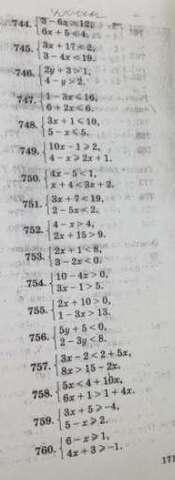 744. { 3 - 6x > 12,
6x + 5 < 4.
745. { 3x + 17 < 2,
3 - 4x < 19.
746. { 2y + 3 > 1,
4 - y > 2.
747. { 1 - 3x ⩽ 16,
6 + 2x ⩽ 6.
748. { 3x + 1 ⩽ 10,
5 - x ⩽ 5.
749. { 10x - 1 ⩾ 2,
4 - x ⩾ 2x + 1.
750. { 4x - 5 < 1,
x + 4 < 3x + 2.
751. { 3x + 7 < 19,
2 - 5x < 2.
752. { 4 - x > 4,
2x + 15 > 9.
753. { 2x + 1 < 8,
3 - 2x < 0.
754. { 10 - 4x > 0,
3x - 1 > 5.
755. { 2x + 10 > 0,
1 - 3x > 13.
756. { 5y + 5 < 0,
2 - 3y < 8.
757. { 3x - 2 < 2 + 5x,
8x > 15 - 2x.
758. { 5x < 4 + 10x,
6x + 1 > 1 + 4x.
759. { 3x + 5 ⩾ -4,
5 - x ⩾ 2.
760. { 6 - x ⩾ 1,
4x + 3 ⩾ -1.
171